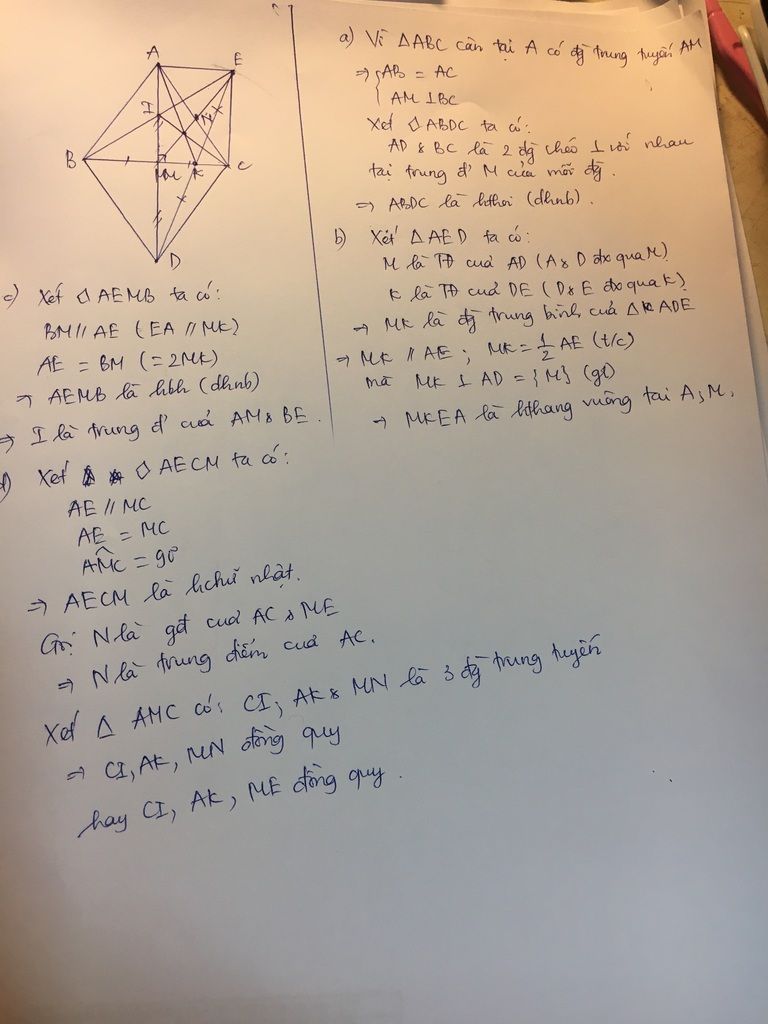 A
E
I
N
B
M
K
C
D
a) Vì ΔABC cân tại A có đg trung tuyến AM
⇒ { AB = AC
AM ⊥ BC
Xét ◇ ABDC ta có:
AD & BC là 2 đg chéo ⊥ với nhau
tại trung đ' M của mỗi đg.
⇒ ABDC là hthoi (dhnb).
b) Xét Δ AED ta có:
M là TĐ của AD (A & D đx qua M)
K là TĐ của DE (D & E đx qua K)
⇒ MK là đg trung bình của Δ ADE
⇒ MK // AE ; MK = 1/2 AE (t/c)
mà MK ⊥ AD = {M} (gt)
⇒ MKEA là hthang vuông tại A, M.
c) Xét ◇ AEMB ta có:
BM // AE (EA // MK)
AE = BM (= 2MK)
⇒ AEMB là hbh (dhnb)
⇒ I là trung đ' của AM & BE.
d) Xét ◇ AECM ta có:
AE // MC
AE = MC
AMC = 90°
⇒ AECM là hchữ nhật.
Gọi N là gđ của AC & ME
⇒ N là trung điểm của AC.
Xét Δ AMC có: CI, AK & MN là 3 đg trung tuyến
⇒ CI, AK, MN đồng quy
hay CI, AK, ME đồng quy.